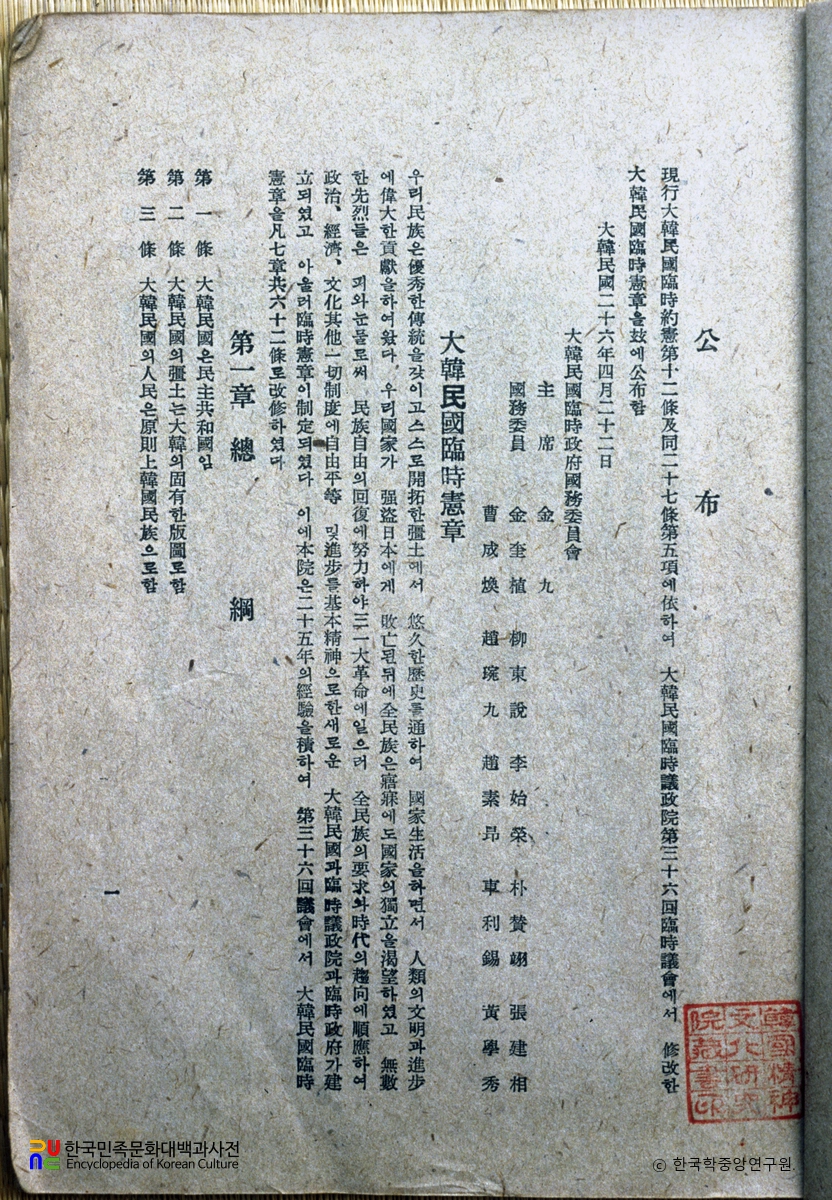 公布
現行大韓民國臨時約憲第十二條及同二十七條第五項에依하여 大韓民國臨時議政院第三十六回臨時議會에서 修改한
大韓民國臨時憲章을玆에公布함
大韓民國二十六年四月二十二日
大韓民國臨時政府國務委員會
主席 金九
國務委員 金奎植 柳東說 李始榮 朴贊翊 張建相
曹成煥 趙琬九 趙素昂 車利錫 黃學秀
大韓民國臨時憲章
우리民族은優秀한傳統을갖이고스스로開拓한疆土에서 悠久한歷史를通하여 國家生活을하면서 人類의文明과進步
에偉大한貢獻을하여왔다. 우리國家가 强盜日本에게 敗亡된뒤에全民族은寤寐에도國家의獨立을渴望하였고 無數
한先烈들은 피와눈물로써 民族自由의回復에努力하야三一大革命에일으러 全民族의要求와時代의趨向에順應하여
政治、經濟、文化其他一切制度에自由平等 및進步를基本精神으로한새로운 大韓民國과臨時議政院과臨時政府가建
立되였고 아울러臨時憲章이制定되였다 이에本院은二十五年의經驗을積하여 第三十六回議會에서 大韓民國臨時
憲章을凡七章共六十二條로改修하였다
第一章 總綱
第一條 大韓民國은民主共和國임
第二條 大韓民國의疆土는大韓의固有한版圖로함
第三條 大韓民國의人民은原則上韓國民族으로함
一
韓國精神
文化研究
院藏書印
한국민족문화대백과사전
Encyclopedia of Korean Culture
© 한국학중앙연구원